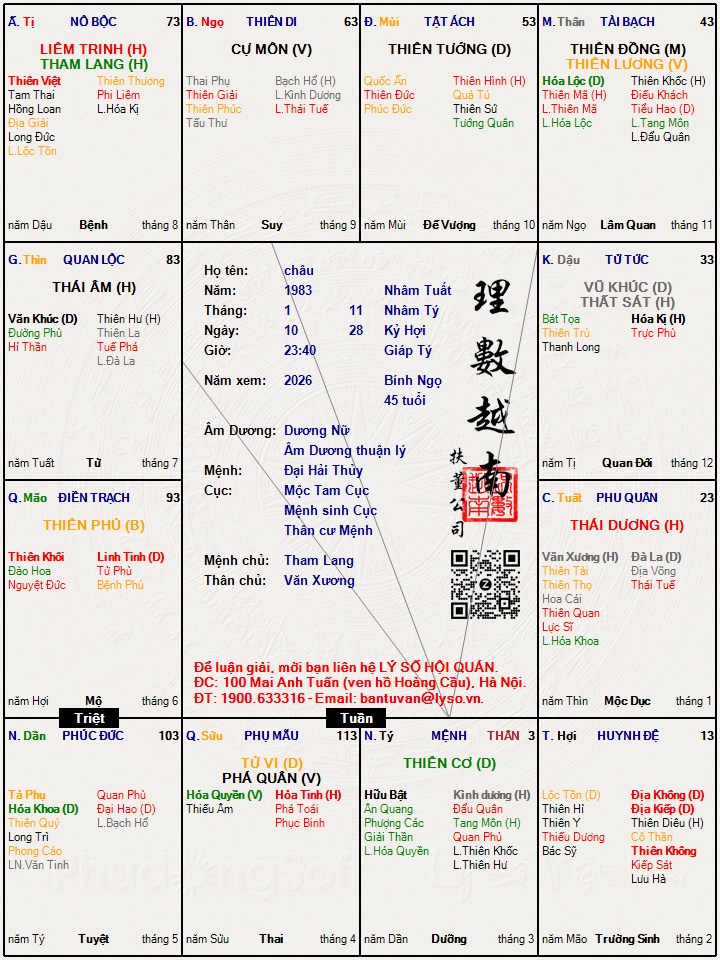 Ấ. Tị NÔ BỘC 73
LIÊM TRINH (H)
THAM LANG (H)
Thiên Việt Thiên Thương
Tam Thai Phi Liêm
Hồng Loan L.Hóa Kị
Địa Giải
Long Đức
L.Lộc Tồn
năm Dậu Bệnh tháng 8
B. Ngọ THIÊN DI 63
CỰ MÔN (V)
Thai Phụ Bạch Hổ (H)
Thiên Giải L.Kình Dương
Thiên Phúc L.Thái Tuế
Tấu Thư
năm Thân Suy tháng 9
Đ. Mùi TẬT ÁCH 53
THIÊN TƯỚNG (D)
Quốc Ấn Thiên Hình (H)
Thiên Đức Quả Tú
Phúc Đức Thiên Sứ
Tướng Quân
năm Mùi Đế Vượng tháng 10
M. Thân TÀI BẠCH 43
THIÊN ĐỒNG (M)
THIÊN LƯƠNG (V)
Hóa Lộc (D) Thiên Khốc (H)
Thiên Mã (H) Điếu Khách
L.Thiên Mã Tiểu Hao (D)
L.Hóa Lộc L.Tang Môn
L.Đẩu Quân
năm Ngọ Lâm Quan tháng 11
G. Thìn QUAN LỘC 83
THÁI ÂM (H)
Văn Khúc (D) Thiên Hư (H)
Đường Phù Thiên La
Hỉ Thần Tuế Phá
L.Đà La
năm Tuất Tử tháng 7
Họ tên: châu
Năm: 1983 Nhâm Tuất
Tháng: 1 11 Nhâm Tý
Ngày: 10 28 Kỷ Hợi
Giờ: 23:40 Giáp Tý
Năm xem: 2026 Bính Ngọ
45 tuổi
Âm Dương: Dương Nữ
Âm Dương thuận lý
Mệnh: Đại Hải Thủy
Cục: Mộc Tam Cục
Mệnh sinh Cục
Thân cư Mệnh
Mệnh chủ: Tham Lang
Thân chủ: Văn Xương
理數越南
扶董公司
Để luận giải, mời bạn liên hệ LÝ SỐ HỘI QUÁN.
ĐC: 100 Mai Anh Tuấn (ven hồ Hoàng Cầu), Hà Nội.
ĐT: 1900.633316 - Email: bantuvan@lyso.vn.
K. Dậu TỬ TỨC 33
VŨ KHÚC (D)
THẤT SÁT (H)
Bát Tọa Hóa Kị (H)
Thiên Trù Trực Phù
Thanh Long
năm Tị Quan Đới tháng 12
Q. Mão ĐIỀN TRẠCH 93
THIÊN PHỦ (B)
Thiên Khôi Linh Tinh (D)
Đào Hoa Tử Phù
Nguyệt Đức Bệnh Phù
năm Hợi Mộ tháng 6
C. Tuất PHU QUÂN 23
THÁI DƯƠNG (H)
Văn Xương (H) Đà La (D)
Thiên Tài Địa Võng
Thiên Thọ Thái Tuế
Hoa Cái
Thiên Quan
Lực Sĩ
L.Hóa Khoa
năm Thìn Mộc Dục tháng 1
Triệt
Tuần
N. Dần PHÚC ĐỨC 103
Tả Phụ Quan Phù
Hóa Khoa (D) Đại Hao (D)
Thiên Quý L.Bạch Hổ
Long Trì
Phong Cáo
LN.Văn Tinh
năm Tý Tuyệt tháng 5
Q. Sửu PHỤ MẪU 113
TỬ VI (D)
PHÁ QUÂN (V)
Hóa Quyền (V) Hỏa Tinh (H)
Thiếu Âm Phá Toái
Phục Binh
năm Sửu Thai tháng 4
N. Tý MỆNH THÂN 3
THIÊN CƠ (D)
Hữu Bật Kình dương (H)
Ân Quang Đẩu Quân
Phượng Các Tang Môn (H)
Giải Thần Quan Phủ
L.Hóa Quyền L.Thiên Khốc
L.Thiên Hư
năm Dần Dưỡng tháng 3
T. Hợi HUYNH ĐỆ 13
Lộc Tồn (D) Địa Không (D)
Thiên Hỉ Địa Kiếp (D)
Thiên Y Thiên Diêu (H)
Thiếu Dương Cô Thần
Bác Sỹ Thiên Không
Kiếp Sát
Lưu Hà
năm Mão Trường Sinh tháng 2